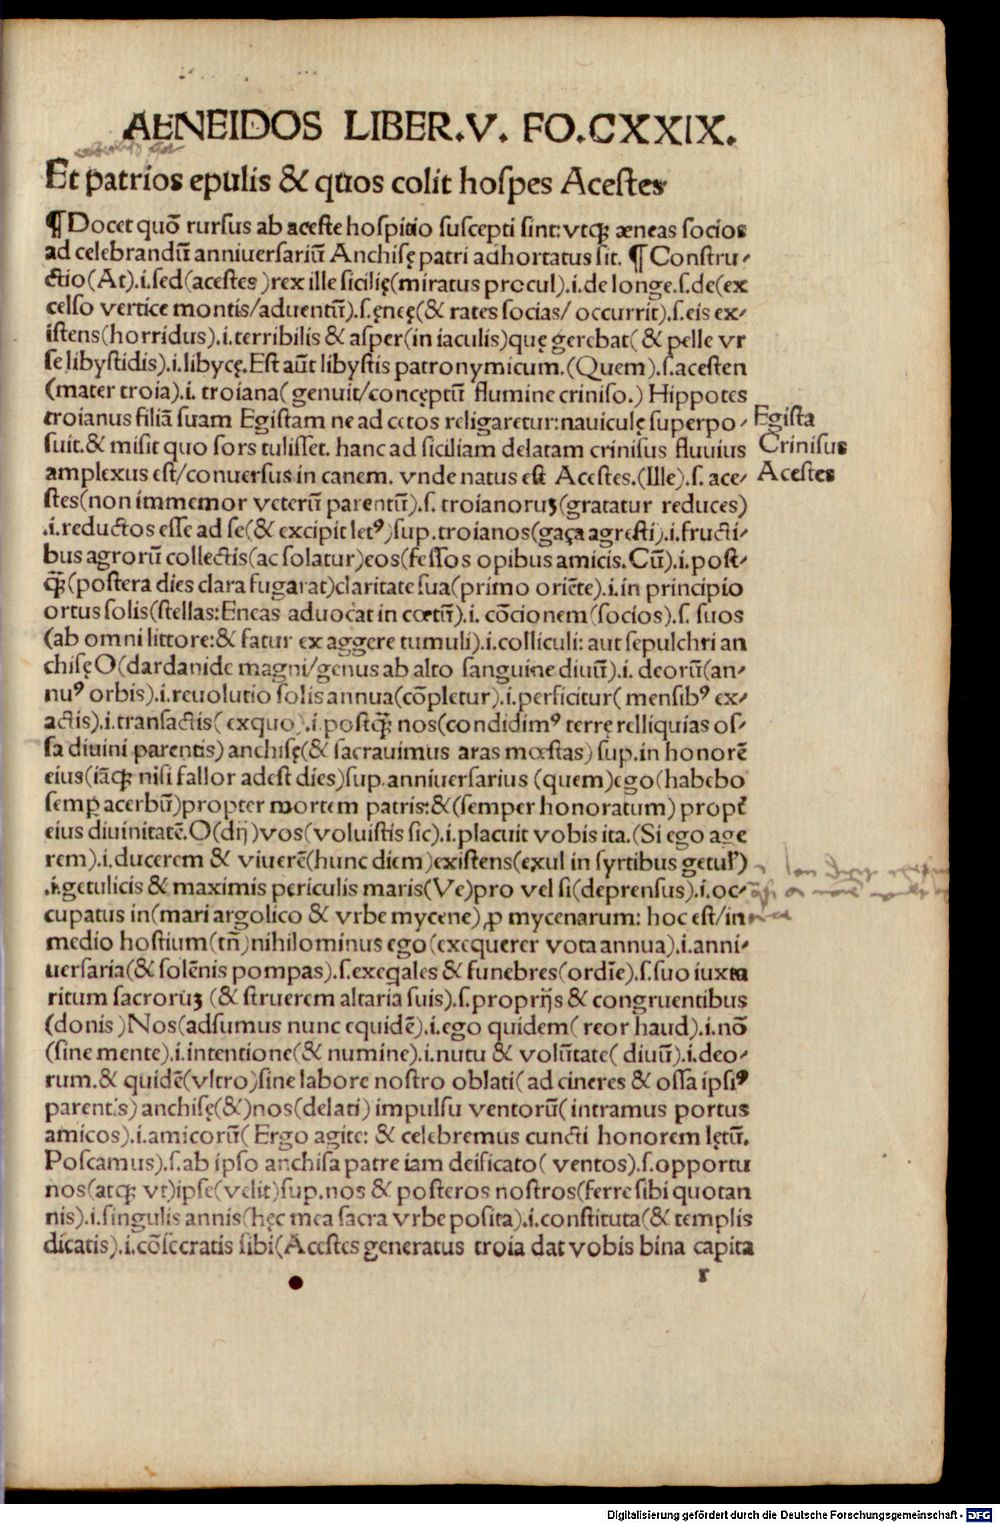 AENEIDOS LIBER.V. FO.CXXIX.
Et patrios epulis & quos colit hoſpes Aceſtes
¶Docet quō rurſus ab aceſte hoſpitio ſuſcepti ſint: vtqꝫ æneas ſocios
ad celebrandū anniuerſariū Anchiſę patri adhortatus ſit. ¶ Conſtru⸗
ctio(At).i.ſed(aceſtes )rex ille ſicilię(miratus procul).i.de longe.ſ.de(ex
celſo vertice montis/aduentū).ſ.ęneę(& rates ſocias/ occurrit).ſ.eis ex⸗
iſtens(horridus).i.terribilis & aſper(in iaculis)quę gerebat( & pelle vr
ſe libyſtidis).i.libycę.Eſt aūt libyſtis patronymicum.(Quem).ſ.aceſten
(mater troia).i. troiana( genuit/conceptū flumine criniſo.) Hippotes
troianus filiā ſuam Egiſtam ne ad cetos religaretur:nauiculę ſuperpo⸗
ſuit.& miſit quo ſors tuliſſet. hanc ad ſiciliam delatam criniſus fluuius
amplexus eſt/conuerſus in canem. vnde natus eſt Aceſtes.(Ille).ſ. ace⸗
ſtes(non immemor veterū parentū).ſ. troianoruꝫ(gratatur reduces)
.i.reductos eſſe ad ſe(& excipit letꝰ)ſup.troianos(gaça agreſti).i.fructi⸗
bus agrorū collectis(ac ſolatur)eos(feſſos opibus amicis.Cū).i.poſt⸗
q̄ꝫ(poſtera dies clara fugarat)claritate ſua(primo oriēte).i.in principio
ortus ſolis(ſtellas:Eneas aduocat in cœtū).i. cōcionem(ſocios).ſ. ſuos
(ab omni littore:& fatur ex aggere tumuli).i.colliculi: aut ſepulchri an
chiſęO(dardanide magni/genus ab alto ſanguine diuū).i. deorū(an⸗
nuꝰ orbis).i.reuolutio ſolis annua(cōpletur).i.perficitur( menſibꝰ ex⸗
actis).i.tranſactis( exquo).i.poſtq̄ꝫ nos(condidimꝰ terrę relliquias oſ⸗
ſa diuini parentis) anchiſę(& ſacrauimus aras mœſtas) ſup.in honorē
eius(iāqꝫ niſi fallor adeſt dies)ſup.anniuerſarius (quem)ego(habebo
ſemꝑ acerbū)propter mortem patris:&(ſemper honoratum) propt̄
eius diuinitatē.O(dij )vos(voluiſtis ſic).i.placuit vobis ita.(Si ego age
rem).i.ducerem & viuerē(hunc diem)exiſtens(exul in ſyrtibus getul̄)
.i.getulicis & maximis periculis maris(Ve)pro vel ſi(deprenſus).i.oc⸗
cupatus in(mari argolico & vrbe mycene) ꝓ mycenarum: hoc eſt/in
medio hoſtium(tn̄)nihilominus ego(exequerer vota annua).i.anni⸗
uerſaria(& ſolēnis pompas).ſ.exeqales & funebres(ordīe).ſ.ſuo iuxta
ritum ſacroruꝫ (& ſtruerem altaria ſuis).ſ.proprijs & congruentibus
(donis )Nos(adſumus nunc equidē).i.ego quidem( reor haud).i.nō
(ſine mente).i.intentione(& numine).i.nutu & volūtate( diuū).i.deo⸗
rum.& quidē(vltro)ſine labore noſtro oblati( ad cineres & oſſa ipſiꝰ
parentis) anchiſę(&)nos(delati) impulſu ventorū( intramus portus
amicos).i.amicorū( Ergo agite: & celebremus cuncti honorem lętū.
Poſcamus).ſ.ab ipſo anchiſa patre iam deificato( ventos).ſ.opportu
nos(atqꝫ vt)ipſe(velit)ſup.nos & poſteros noſtros(ferre ſibi quotan
nis).i.ſingulis annis(hęc mea ſacra vrbe poſita).i.conſtituta(& templis
dicatis).i.cōſecratis ſibi(Aceſtes generatus troia dat vobis bina capita
r
Egiſta
Criniſus
Aceſtes
Digitalisierung gefördert durch die Deutsche Forschungsgemeinschaft - DFG